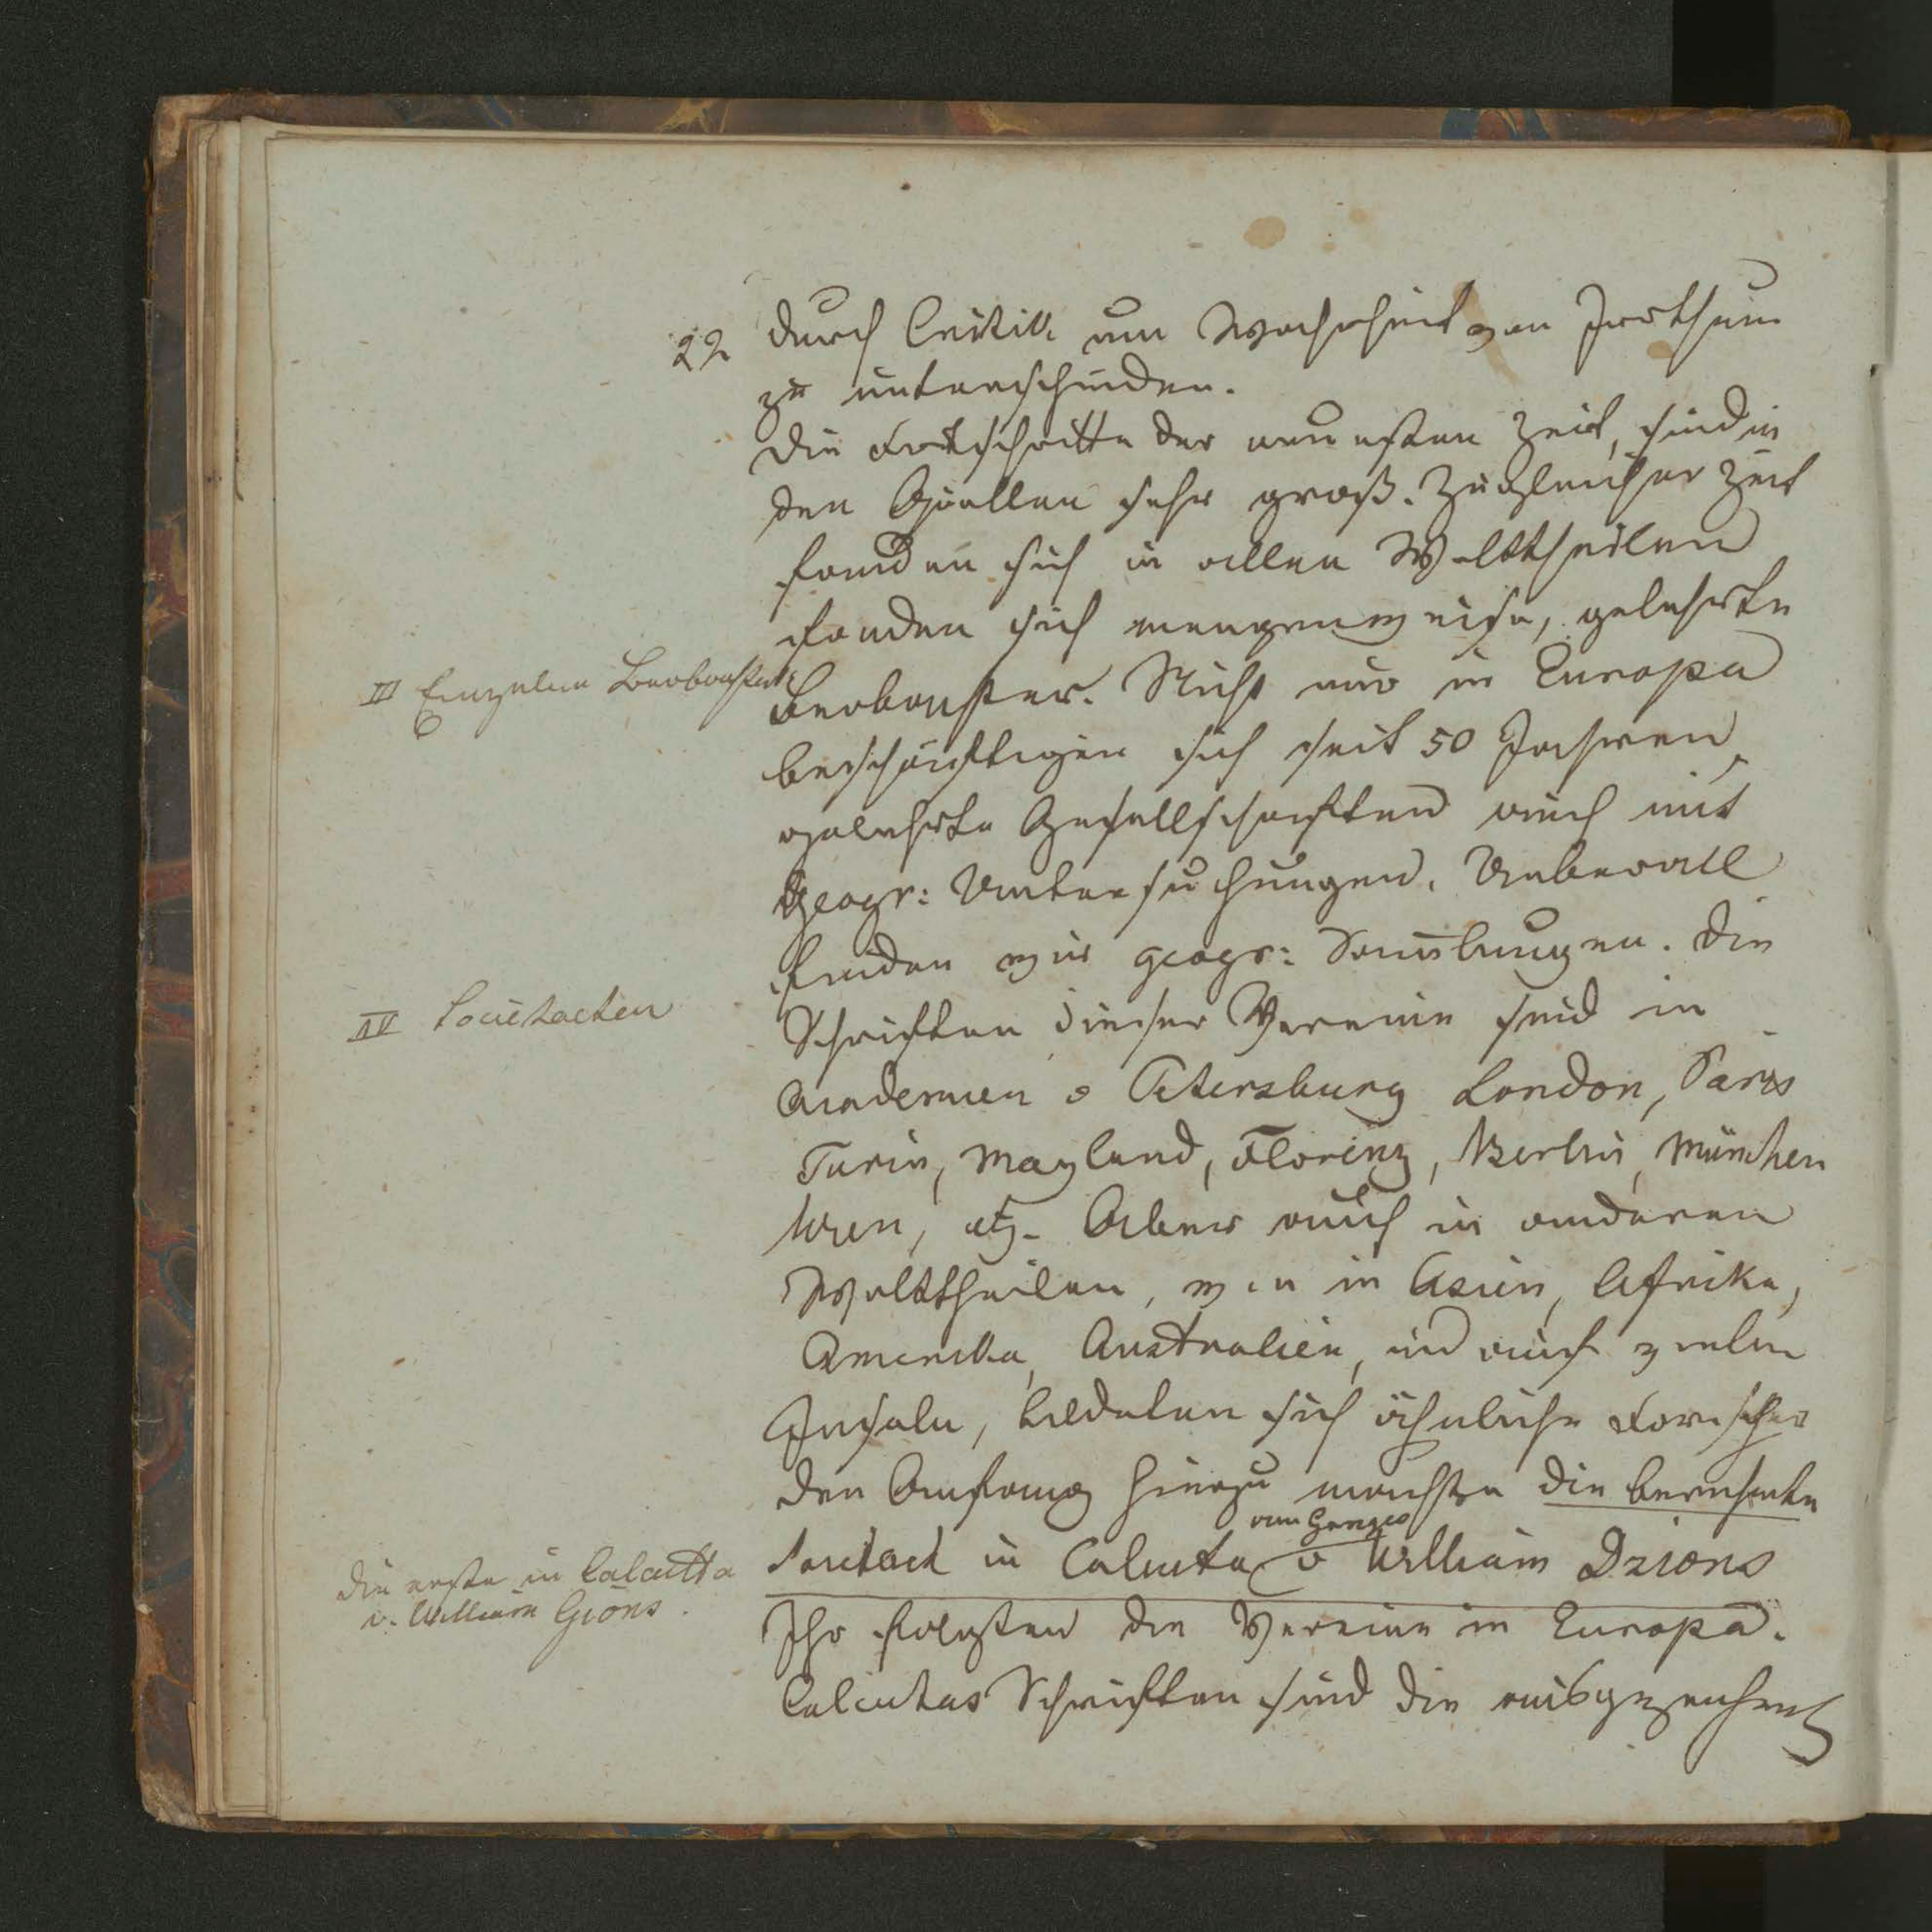 22 durch Critik um Wahrheit von Irrthum
zu unterscheiden.
Die Fortschritte der neuesten Zeit, sind in
den Quellen sehr groß. Zu gleicher Zeit
fanden sich in allen Welttheilen
fanden sich mengenweise, gelehrte
III Einzelne Beobachter
Beobachter. Nicht nur in Europa
beschäftigen sich seit 50 Jahren,
gelehrte Gesellschaften auch mit
Geogr: Untersuchungen. Ueberall
finden wir geogr: Samlungen. Die
IV Societaeten
Schriften dieser Vereine sind in
Academien v Petersburg London, Paris
Turin, Mayland, Florenz, Berlin, München
Wien, etz. Aber auch in anderen
Welttheilen, wie in Asien, Afrika,
Amerika, Australien, und auf vielen
Inseln, bildeten sich ähnliche Forscher
den Anfang hierzu machte die beruhmte
am Ganges
Societaet in Calcuta v William Dzions
die erste in Calcutta
v. William Gions.
Ihr folgten die Vereine in Europa.
Calcutas Schriften sind die ausgezeichnet